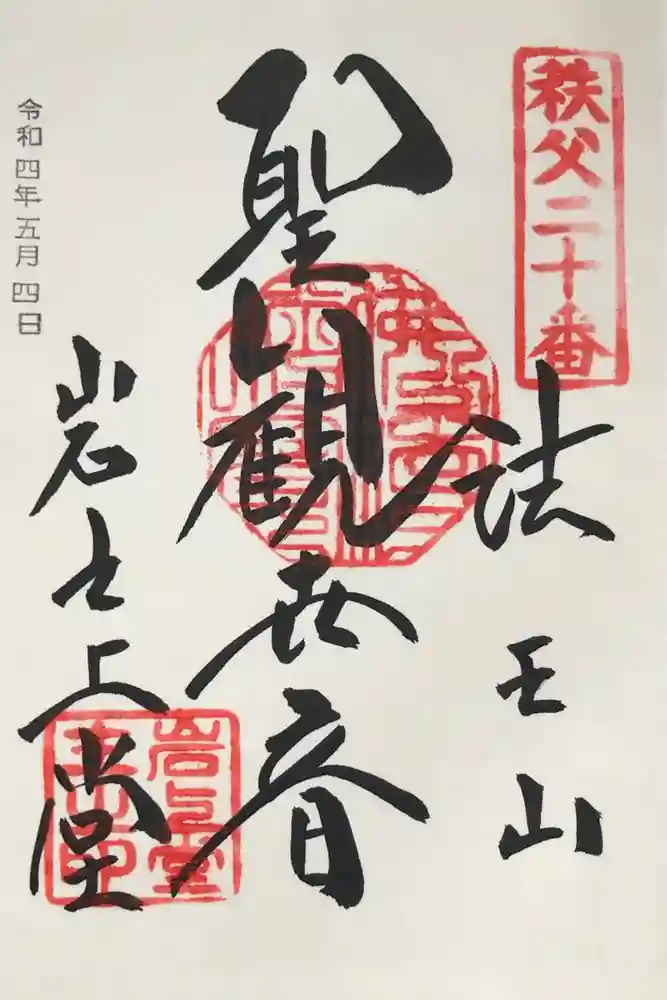 秩父二十番
法王山
聖観世音
岩之上堂
令和四年五月四日
岩之上堂